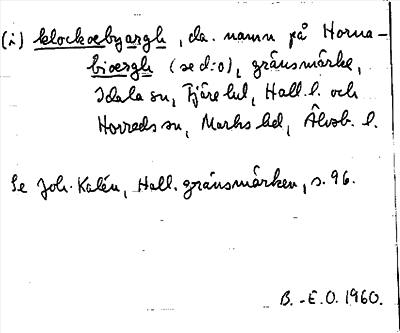 (i) klockoebyargh, da. namn på Horna-
bioergh (se d:o), gränsmärke,
Idala sn, Fjäre hd, Hall. l. och
Horreds sn, Marks hd, Älvsb. l.
Se Joh. Kalén, Hall. gränsmärken, s. 96.
B.-E.O. 1960.